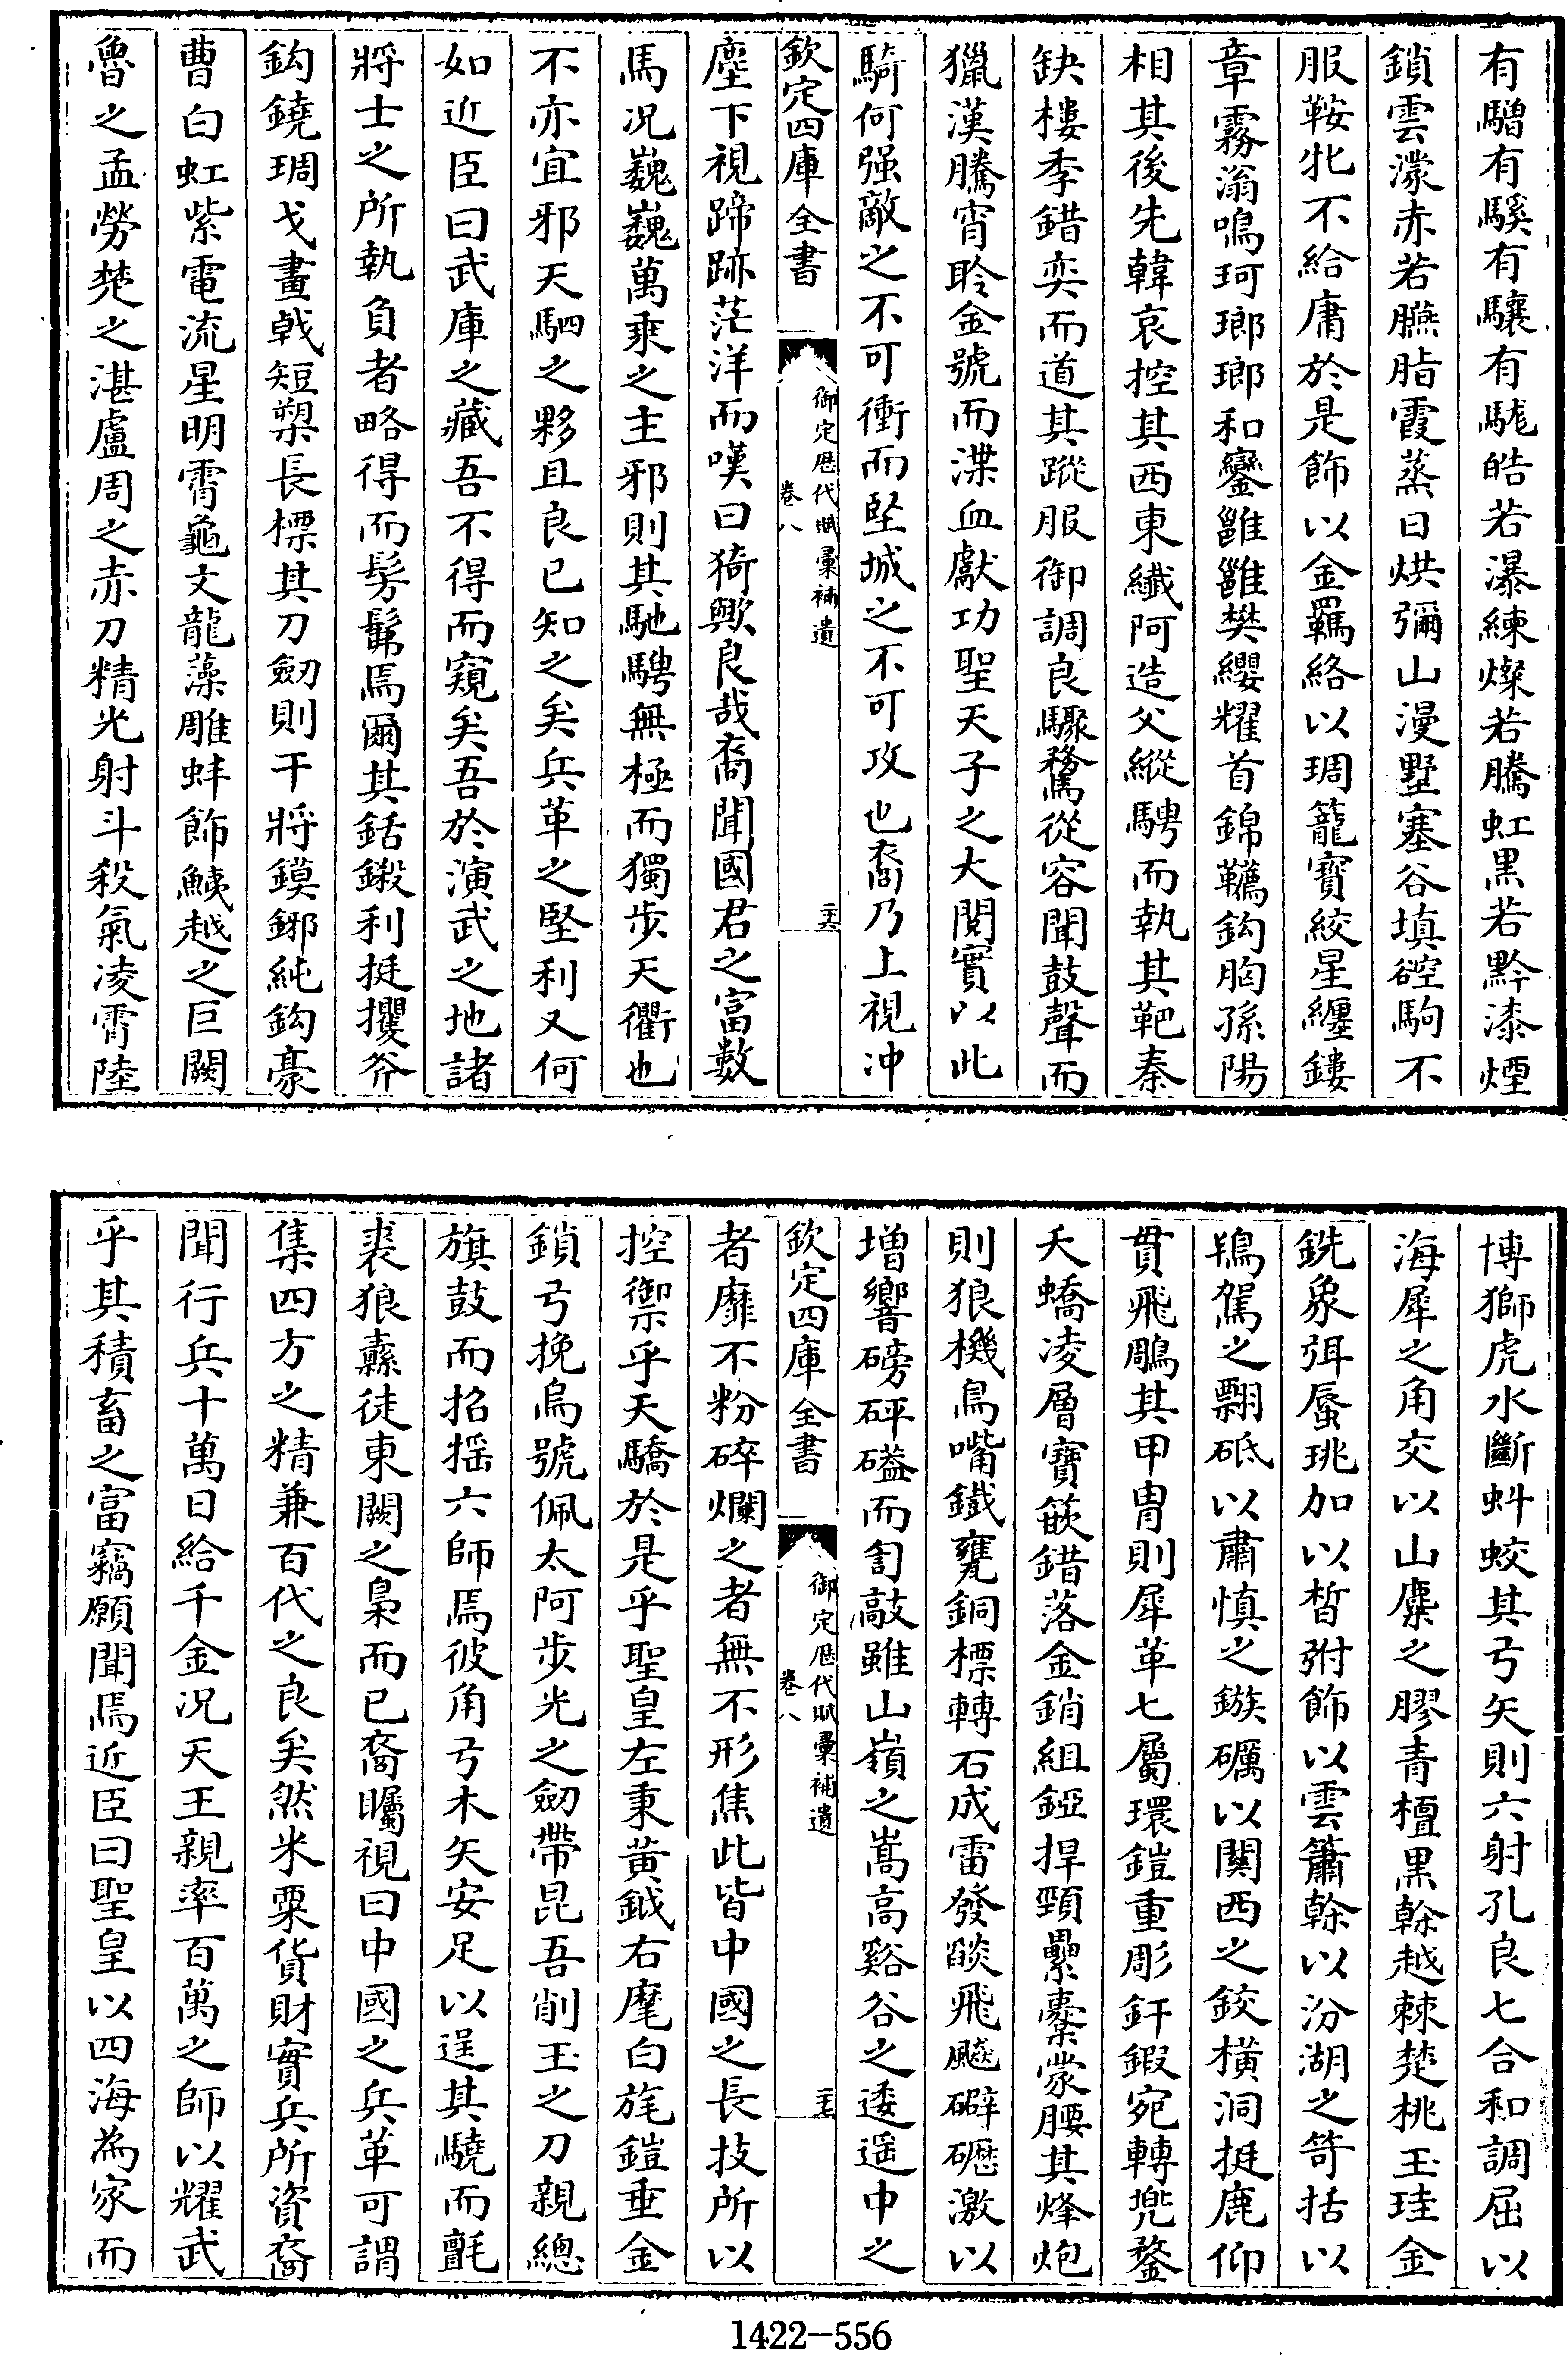 有騮有騤有驤有駹皓若瀑練燦若騰虹黒若黔漆煙
鎖雲濛赤若臙脂霞蒸日烘彌山漫墅塞谷填磴駒不
服鞍牝不給庸於是飾以金羈絡以琱籠寳絞星纒鏤
章霧滃鳴珂瑯瑯和鑾雝雝樊纓耀首錦韉鈎胸孫陽
相其後先韓哀控其西東纎阿造父縱騁而執其靶秦
缺樓季錯奕而道其蹤服御調良驟騖從容聞鼓聲而
獵漢騰宵聆金號而渫血獻功聖天子之大閱實以此
騎何强敵之不可衝而堅城之不可攻也裔乃上視冲
欽定四庫全書
御定歴代賦彚補遺
卷八
二十六
塵下視蹄跡茫洋而嘆曰猗歟良哉裔聞國君之富數
馬况巍巍萬乘之主邪則其馳騁無極而獨步天衢也
不亦宜邪天駟之夥且良已知之矣兵革之堅利又何
如近臣曰武庫之藏吾不得而窺矣吾於演武之地諸
將士之所執負者略得而髣髴焉爾其銛鍛利挺攫斧
鈎鐃琱戈畫戟短槊長標其刀劒則干將鏌鋣純鈎豪
曹白虹紫電流星明霄龜文龍藻雕蚌飾鮧越之巨闕
魯之孟勞楚之湛盧周之赤刀精光射斗殺氣凌霄陸
博獅虎水斷蚪蛟其弓矢則六射孔良七合和調屈以
海犀之角交以山麋之膠青檀黒榦越棘楚桃玉珪金
銑象弭蜃珧加以晳弣飾以雲簫榦以汾湖之笴括以
鵕鴐之翾砥以肅慎之鏃礪以関西之鉸橫洞挺鹿仰
貫飛鵰其甲胄則犀革七屬環鎧重彫釬鍜宛轉兠鍪
夭蟜凌層寳篏錯落金銷組錏捍頸纍櫜蒙腰其烽炮
則狼機鳥嘴鐵甕銅標轉石成雷發燄飛飈礔礰激以
増響磅砰礚而訇敲雖山嶺之嵩高谿谷之逶遥中之
欽定四庫全書
御定歴代賦彚補遺
卷八
二十七
者靡不粉碎爛之者無不形焦此皆中國之長技所以
控禦乎天驕於是乎聖皇左秉黄鉞右麾白旄鎧垂金
鎖弓挽烏號佩太阿步光之劒帶昆吾削玉之刀親總
旗鼓而招揺六師焉彼角弓木矢安足以逞其驍而氈
裘狼纛徒東闕之梟而已裔矚視曰中國之兵革可謂
集四方之精兼百代之良矣然米粟貨財實兵所資裔
聞行兵十萬日給千金况天王親率百萬之師以耀武
乎其積畜之富竊願聞焉近臣曰聖皇以四海為家而
1422-556